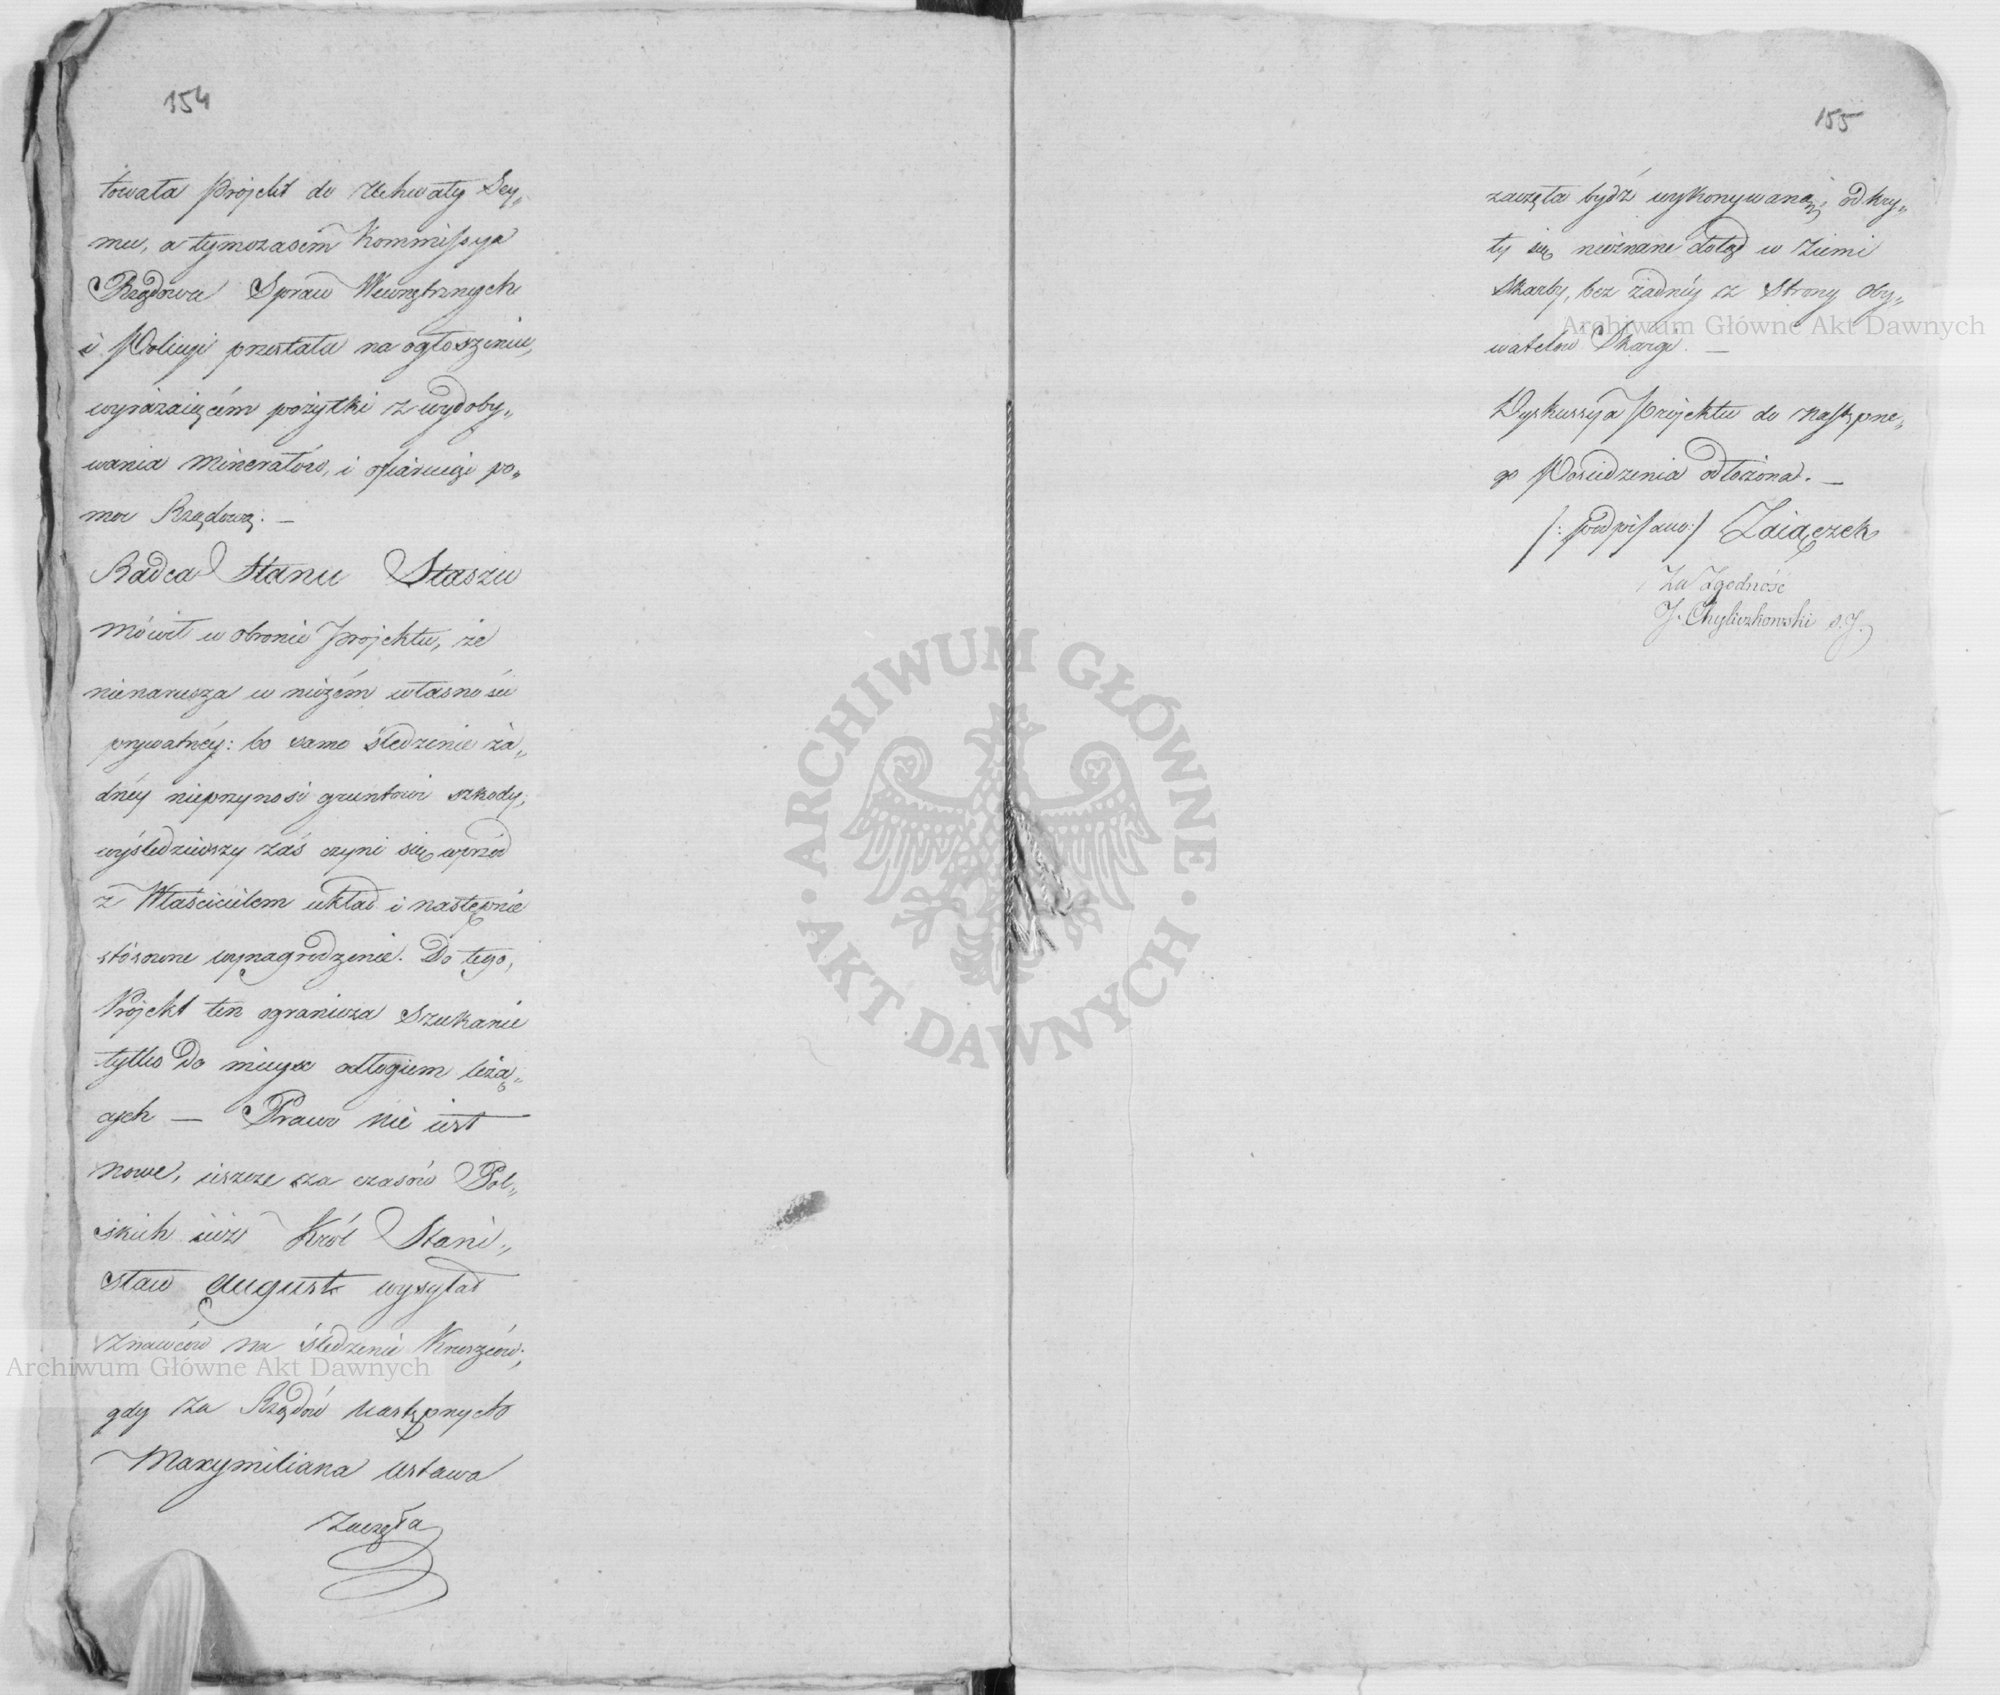 154
towała Projekt do Uchwały Sey„
mu, a tymczasem Kommissya
Rządowa Spraw Wewnętrznych
i Policyi przestała na ogłoszeniu,
wyrażaiącém pożytki z wydoby„
wania minerałów, i ofiaruiąc po„
moc Rządową. —
Radca Stanu Staszic
mówił w obronie projektu, że
nienarusza w niczém własności
prywatnéy: bo samo śledzenie ża„
dnéy nieprzynosi gruntowi szkody;
wyśledziwszy zaś czyni się wprzód
z Właścicielem układ i następnie
stósowne wynagrodzenie. Do tego,
Projekt ten ogranicza szukanie
tylko do mieysc odłogiem leżą„
cych — Prawo nie iest
nowe, ieszcze za czasów Pol„
skich iuż Król Stani„
sław August wysyłał
znawców na śledzenie Kruszców;
gdy za Rządów następnych
Maxymiliana ustawa
zaczęła
155
zaczęta bydź wykonywaną, odkry„
ły się nieznane dotąd w ziemi
skarby, bez żadnéy ze strony Oby„
watelów Skargi. —
Dyskussya projektu do następne„
go Posiedzenia odłożona. —
/: podpisano :/ Zaiączek
Za Zgodność
J. Chyliczkowski S. J.
ARCHIWUM GŁÓWNE · AKT DAWNYCH ·
Archiwum Główne Akt Dawnych
Archiwum Główne Akt Dawnych